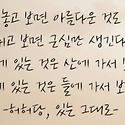 놓고 보면 아름다운 것도
쥐고 보면 근심만 생긴다
에 있는 것은 산에 가서 !
에 있는 것은 들에 가서 보
-허허당, 있는 그대로-